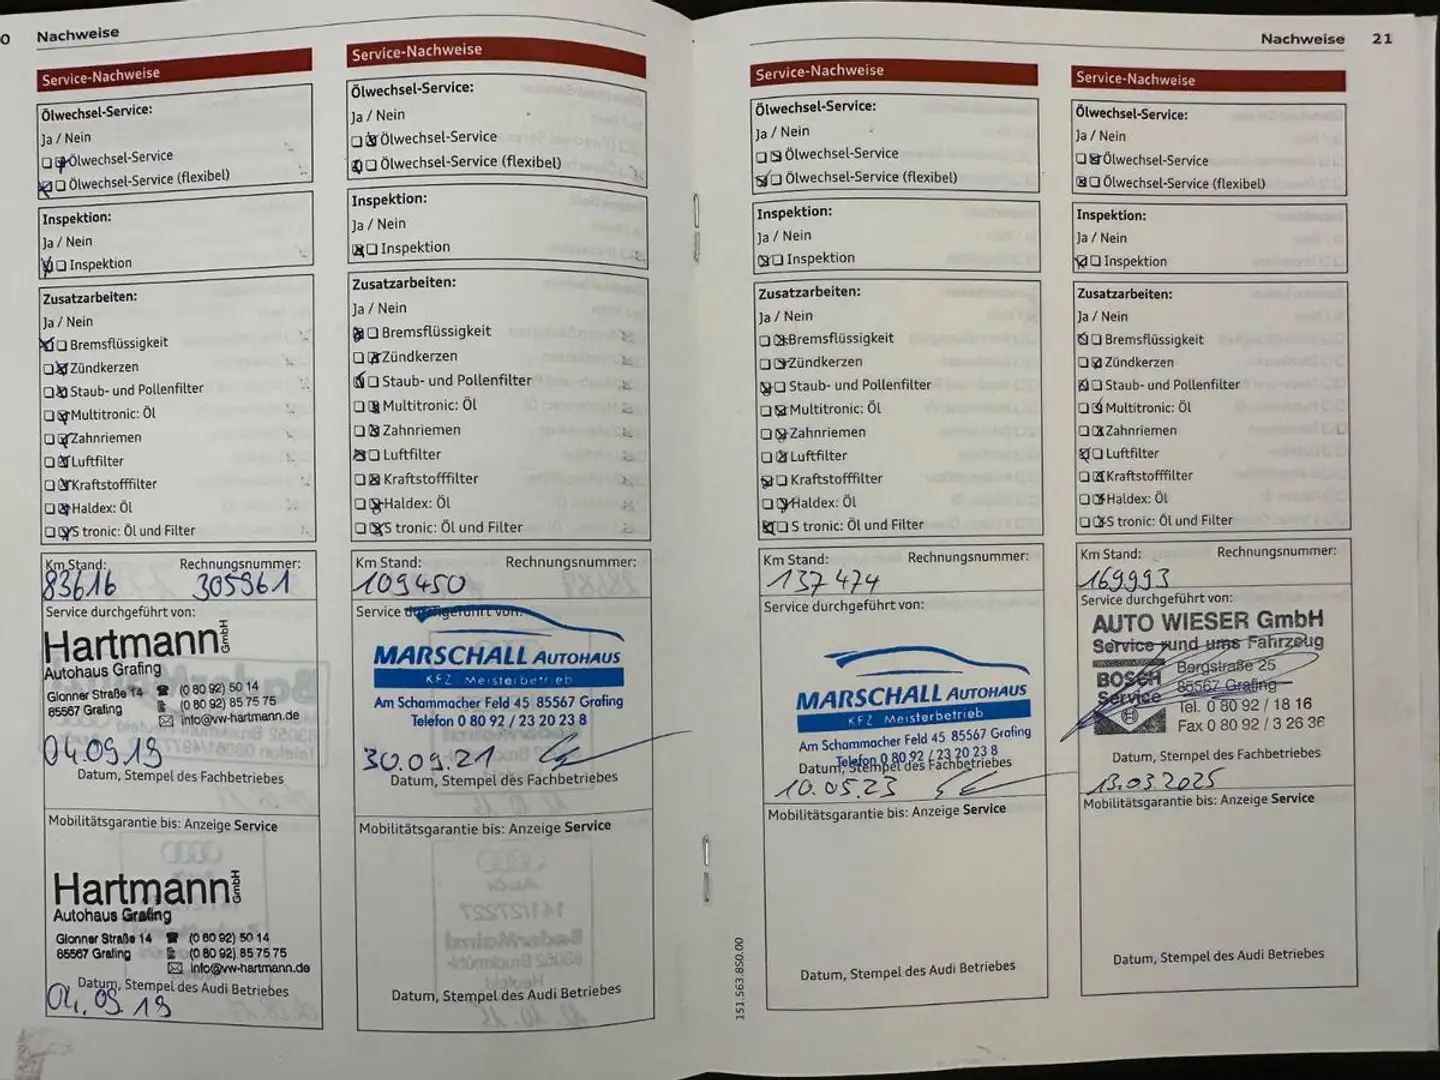 0 Nachweise
Service-Nachweise
Ölwechsel-Service:
Ja / Nein
Ölwechsel-Service
Ölwechsel-Service (flexibel)
Inspektion:
Ja / Nein
Inspektion
Zusatzarbeiten:
Ja / Nein
Bremsflüssigkeit
Zündkerzen
Staub- und Pollenfilter
Multitronic: Öl
Zahnriemen
Luftfilter
Kraftstofffilter
Haldex: Öl
S tronic: Öl und Filter
Km Stand: Rechnungsnummer:
83616 305961
Service durchgeführt von:
Hartmann GmbH
Autohaus Grafing
Glonner Straße 14 (0 80 92) 50 14
85567 Grafing (0 80 92) 85 75 75
info@vw-hartmann.de
04.09.19
Datum, Stempel des Fachbetriebes
Mobilitätsgarantie bis: Anzeige Service
Hartmann GmbH
Autohaus Grafing
Glonner Straße 14 (0 80 92) 50 14
85567 Grafing (0 80 92) 85 75 75
info@vw-hartmann.de
Datum, Stempel des Audi Betriebes
04.09.19
Service-Nachweise
Ölwechsel-Service:
Ja / Nein
Ölwechsel-Service
Ölwechsel-Service (flexibel)
Inspektion:
Ja / Nein
Inspektion
Zusatzarbeiten:
Ja / Nein
Bremsflüssigkeit
Zündkerzen
Staub- und Pollenfilter
Multitronic: Öl
Zahnriemen
Luftfilter
Kraftstofffilter
Haldex: Öl
S tronic: Öl und Filter
Km Stand: Rechnungsnummer:
109450
Service durchgeführt von:
MARSCHALL AUTOHAUS
KFZ Meisterbetrieb
Am Schammacher Feld 45 85567 Grafing
Telefon 0 80 92 / 23 20 23 8
30.09.21
Datum, Stempel des Fachbetriebes
Mobilitätsgarantie bis: Anzeige Service
Datum, Stempel des Audi Betriebes
Nachweise 21
Service-Nachweise
Ölwechsel-Service:
Ja / Nein
Ölwechsel-Service
Ölwechsel-Service (flexibel)
Inspektion:
Ja / Nein
Inspektion
Zusatzarbeiten:
Ja / Nein
Bremsflüssigkeit
Zündkerzen
Staub- und Pollenfilter
Multitronic: Öl
Zahnriemen
Luftfilter
Kraftstofffilter
Haldex: Öl
S tronic: Öl und Filter
Km Stand: Rechnungsnummer:
137 474
Service durchgeführt von:
MARSCHALL AUTOHAUS
KFZ Meisterbetrieb
Am Schammacher Feld 45 85567 Grafing
Telefon 0 80 92 / 23 20 23 8
Datum, Stempel des Fachbetriebes
10.05.23
Mobilitätsgarantie bis: Anzeige Service
Datum, Stempel des Audi Betriebes
151.563.850.00
Service-Nachweise
Ölwechsel-Service:
Ja / Nein
Ölwechsel-Service
Ölwechsel-Service (flexibel)
Inspektion:
Ja / Nein
Inspektion
Zusatzarbeiten:
Ja / Nein
Bremsflüssigkeit
Zündkerzen
Staub- und Pollenfilter
Multitronic: Öl
Zahnriemen
Luftfilter
Kraftstofffilter
Haldex: Öl
S tronic: Öl und Filter
Km Stand: Rechnungsnummer:
169993
Service durchgeführt von:
AUTO WIESER GmbH
Service rund ums Fahrzeug
BOSCH Bergstraße 25
Service 85567 Grafing
Tel. 0 80 92 / 18 16
Fax 0 80 92 / 3 26 36
Datum, Stempel des Fachbetriebes
13.03.2025
Mobilitätsgarantie bis: Anzeige Service
Datum, Stempel des Audi Betriebes